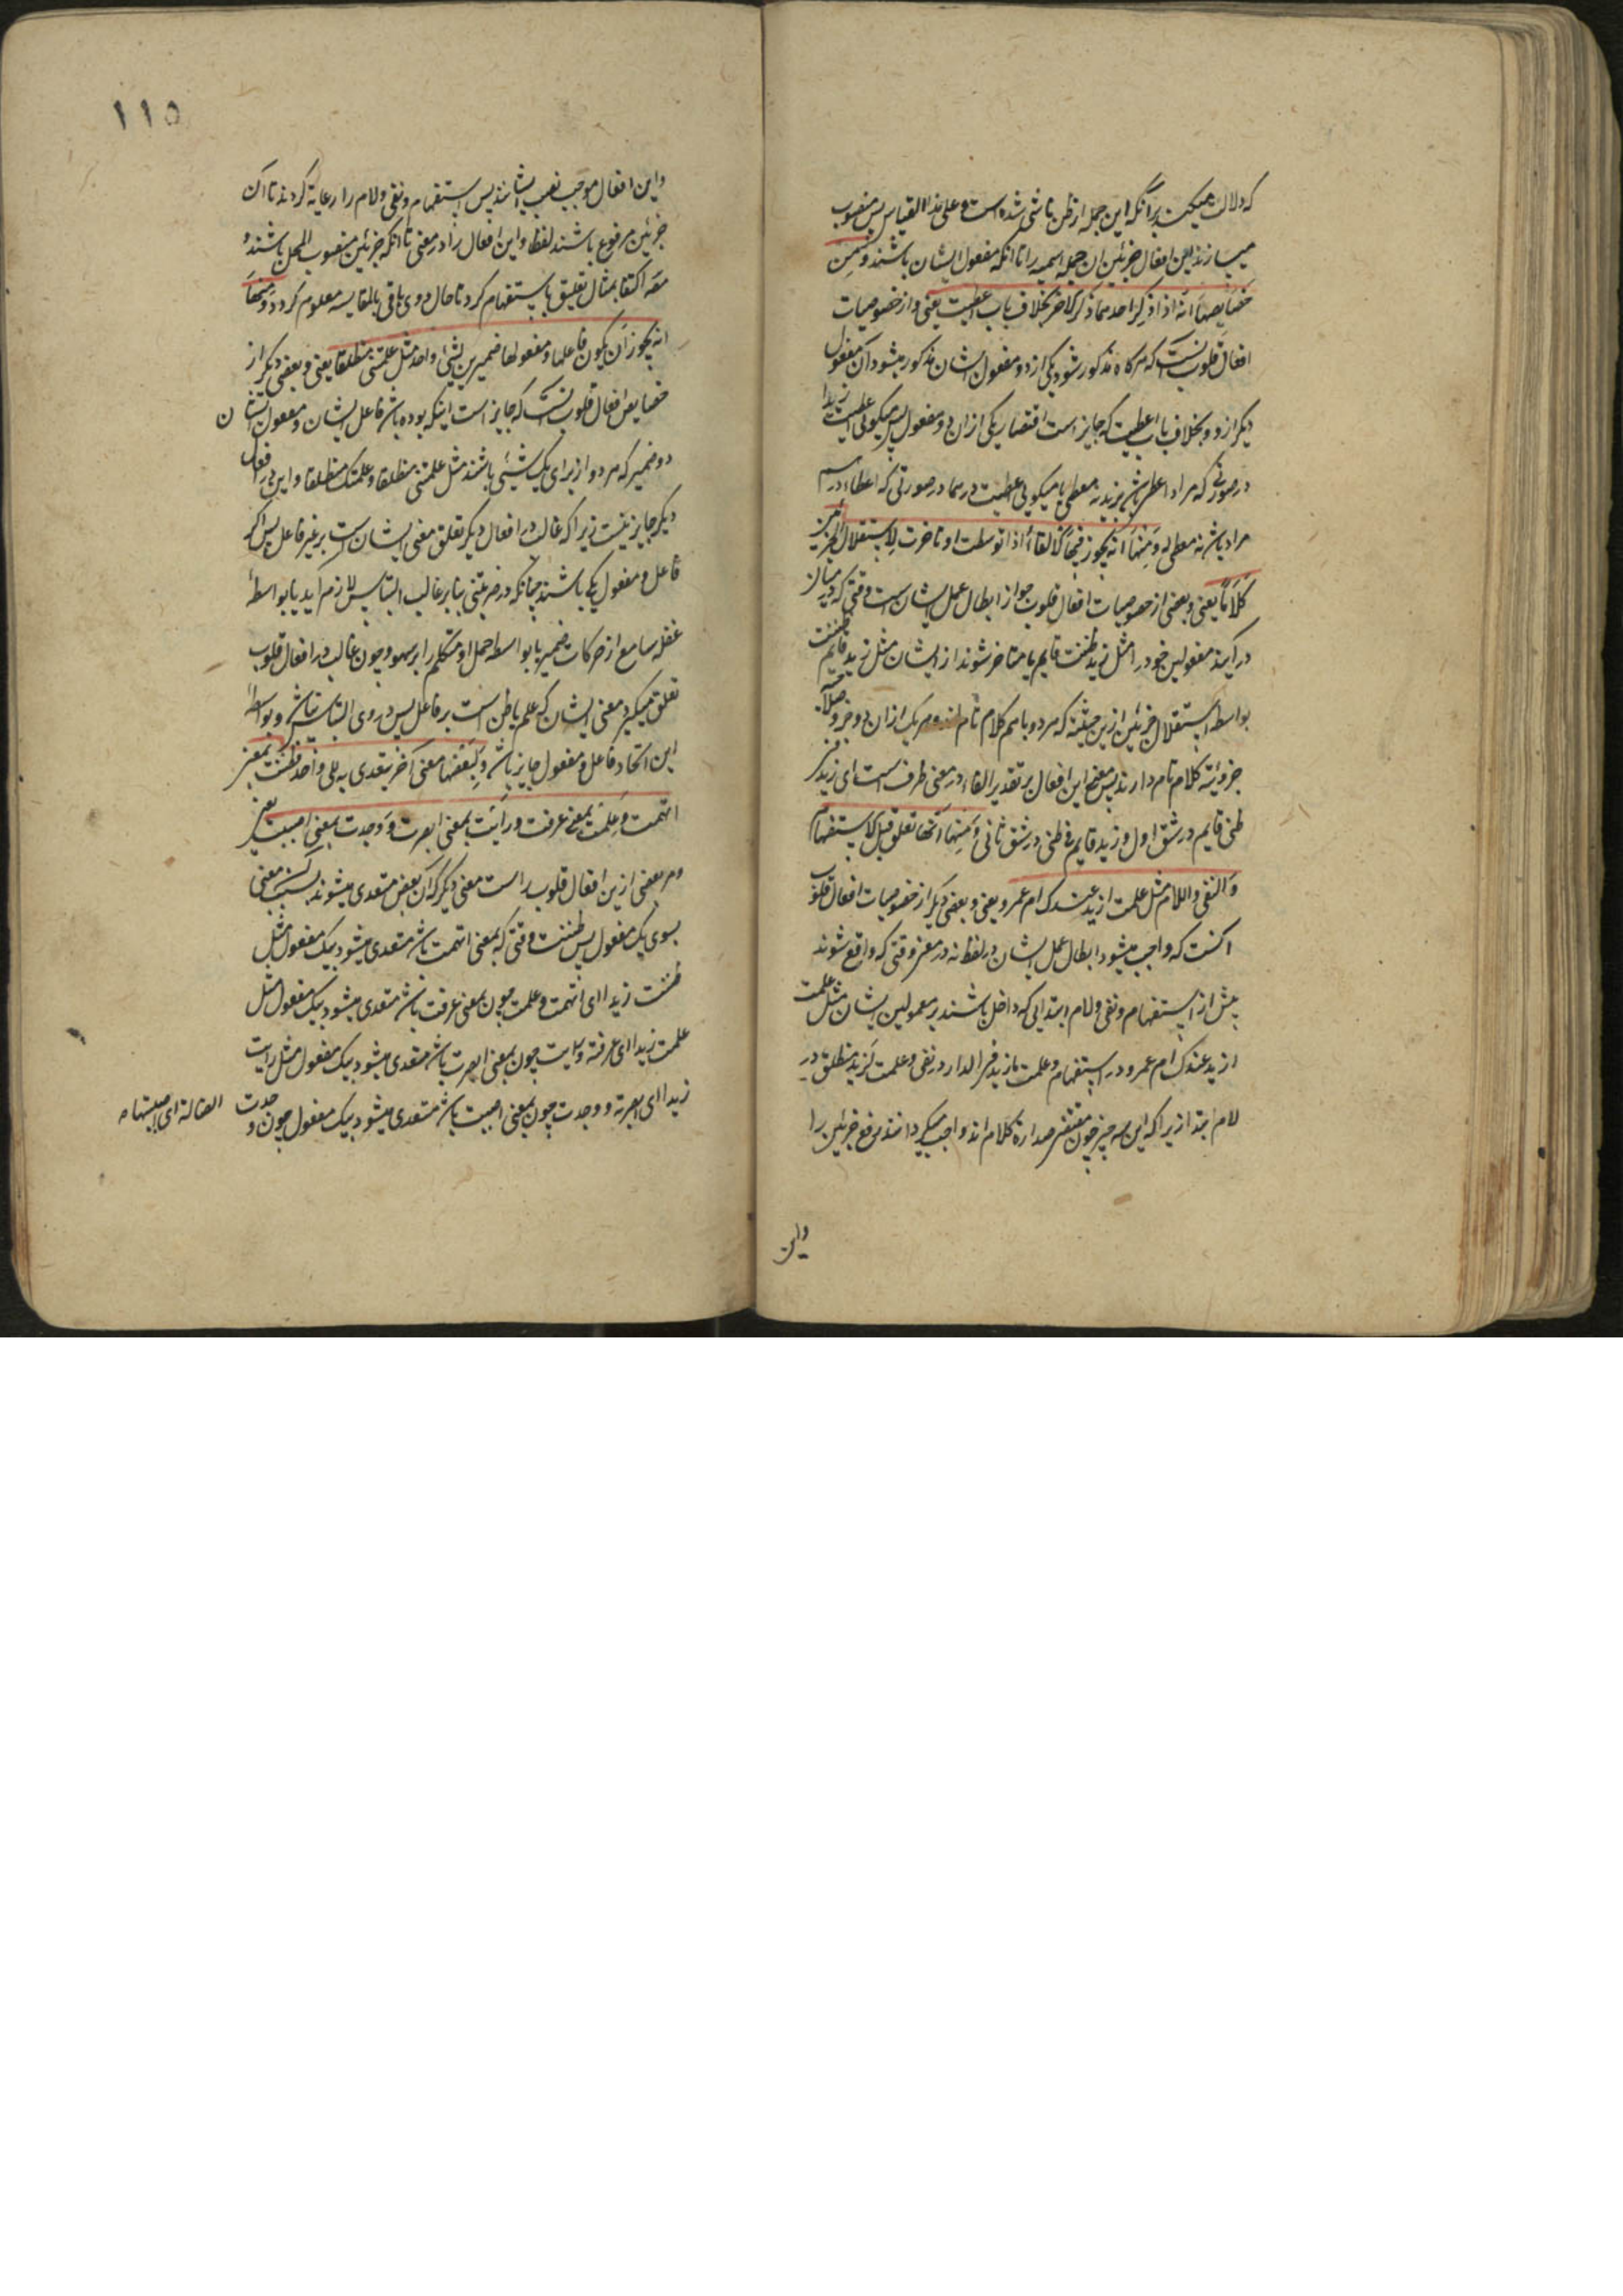 که دلالت میکند برآنکه این جمله از ظن ناشی شده است و علی هذا القیاس پس منصوب
میسازند این افعال جزئین ان جمله اسمیه را تا انکه مفعول ایشان باشند و من
خصایصها انه اذا ذکر احدهما ذکر الاخر بخلاف باب اعطیت یعنی و از خصوصیات
افعال قلوب انست که هرکاه مذکور شود یکی از دو مفعول ایشان مذکور میشود آن مفعول
دیکر از دو بخلاف باب اعطیت که جایز است اقتصار بر یکی ازان دو مفعول پس میکویی اعطیت زیدا
در صورتی که مراد اعطا باشد بزید نه معطی یا میکویی اعطیت درهما در صورتی که اعطاء درهم
مراد باشد نه معطی له و منها انه یجوز فیها الالغاء اذا توسطت او تاخرت لاستقلال الجزئین
کلاما یعنی و بعضی از خصوصیات افعال قلوب جواز ابطال عمل ایشان است وقتی که در میان
در آیند مفعولین خود را مثل زید ظننت قایم یا متاخر شوند از ایشان مثل زید قایم ظننت
بواسطه استقلال جزئین ازین حیثیت که هر دو باهم کلام تام اند و هریک ازان دو جزو صلاحیت
جزوئیت کلام تام دارند پس معنی این افعال بر تقدیر الغاء در معنی ظرف است ای زید فی
ظنی قایم در شق اول و زید قایم فی ظنی در شق ثانی و منها انها تعلق قبل الاستفهام
و النفی و اللام مثل علمت ازید عندک ام عمرو یعنی و بعضی دیکر از خصوصیات افعال قلوب
انست که واجب میشود ابطال عمل ایشان در لفظ نه در معنی وقتی که واقع شوند
پیش از استفهام و نفی و لام ابتدایی که داخل باشند بر معمولین ایشان مثل علمت
ازید عندک ام عمرو در استفهام و علمت ما زید فی الدار در نفی و علمت لزید منطلق در
لام ابتدا زیرا که این سه چیز چون مقتضی صدارة کلام اند واجب میکردانند رفع جزئین را
واین
١١٥
واین افعال موجب نصب ایشانند پس استفهام و نفی و لام را رعایة کردند تا آن
جزئین مرفوع باشند لفظا و این افعال را در معنی تا انکه جزئین منصوب المحل باشند و
مصه اکتفا بمثال تعلیق باستفهام کرد تا حال دوی باقی بالمقایسه معلوم کردد و منها
انه یجوز ان یکون فاعلها و مفعولها ضمیرین لشیء واحد مثل علمتنی منطلقا یعنی و بعضی دیکر از
خصایص افعال قلوب انست که جایز است اینکه بوده باشد فاعل ایشان و مفعول ایشان
دو ضمیر که هر دو از برای یک شیئی باشند مثل علمتنی منطلقا و علمتک منطلقا و این در فعل
دیکر جایز نیست زیرا که غالب در افعال دیکر تعلق معنی ایشان است بر غیر فاعل پس اکر
فاعل و مفعول یکی باشند چنانکه در ضربتنی بنابر غالب التباس لازم آید یا بواسطه
غفله سامع از حرکات ضمیر یا بواسطه حمل او متکلم را بر سهو و چون غالب در افعال قلوب
تعلق میکیرد معنی ایشان که علم یا ظن است بر فاعل پس در وی التباس نباشد و بواسطه
این اتحاد فاعل و مفعول جایز باشد و لبعضها معنی آخر یتعدی به الی واحد فظننت بمعنی
اتهمت و علمت بمعنی عرفت و رأیت بمعنی ابصرت و وجدت بمعنی اصبت یعنی
و مر بعضی ازین افعال قلوب راست معنی دیکر که آن بعض متعدی میشوند بسبب آن معنی
بسوی یک مفعول پس ظننت وقتی که بمعنی اتهمت باشد متعدی میشود بیک مفعول مثل
ظننت زیدا ای اتهمت و علمت چون بمعنی عرفت باشد متعدی میشود بیک مفعول مثل
علمت زیدا ای عرفته و رایت چون بمعنی ابصرت باشد متعدی میشود بیک مفعول مثل رایت
زیدا ای ابصرته و وجدت چون بمعنی اصبت باشد متعدی میشود بیک مفعول چون وجدت الضالة ای اصبتها